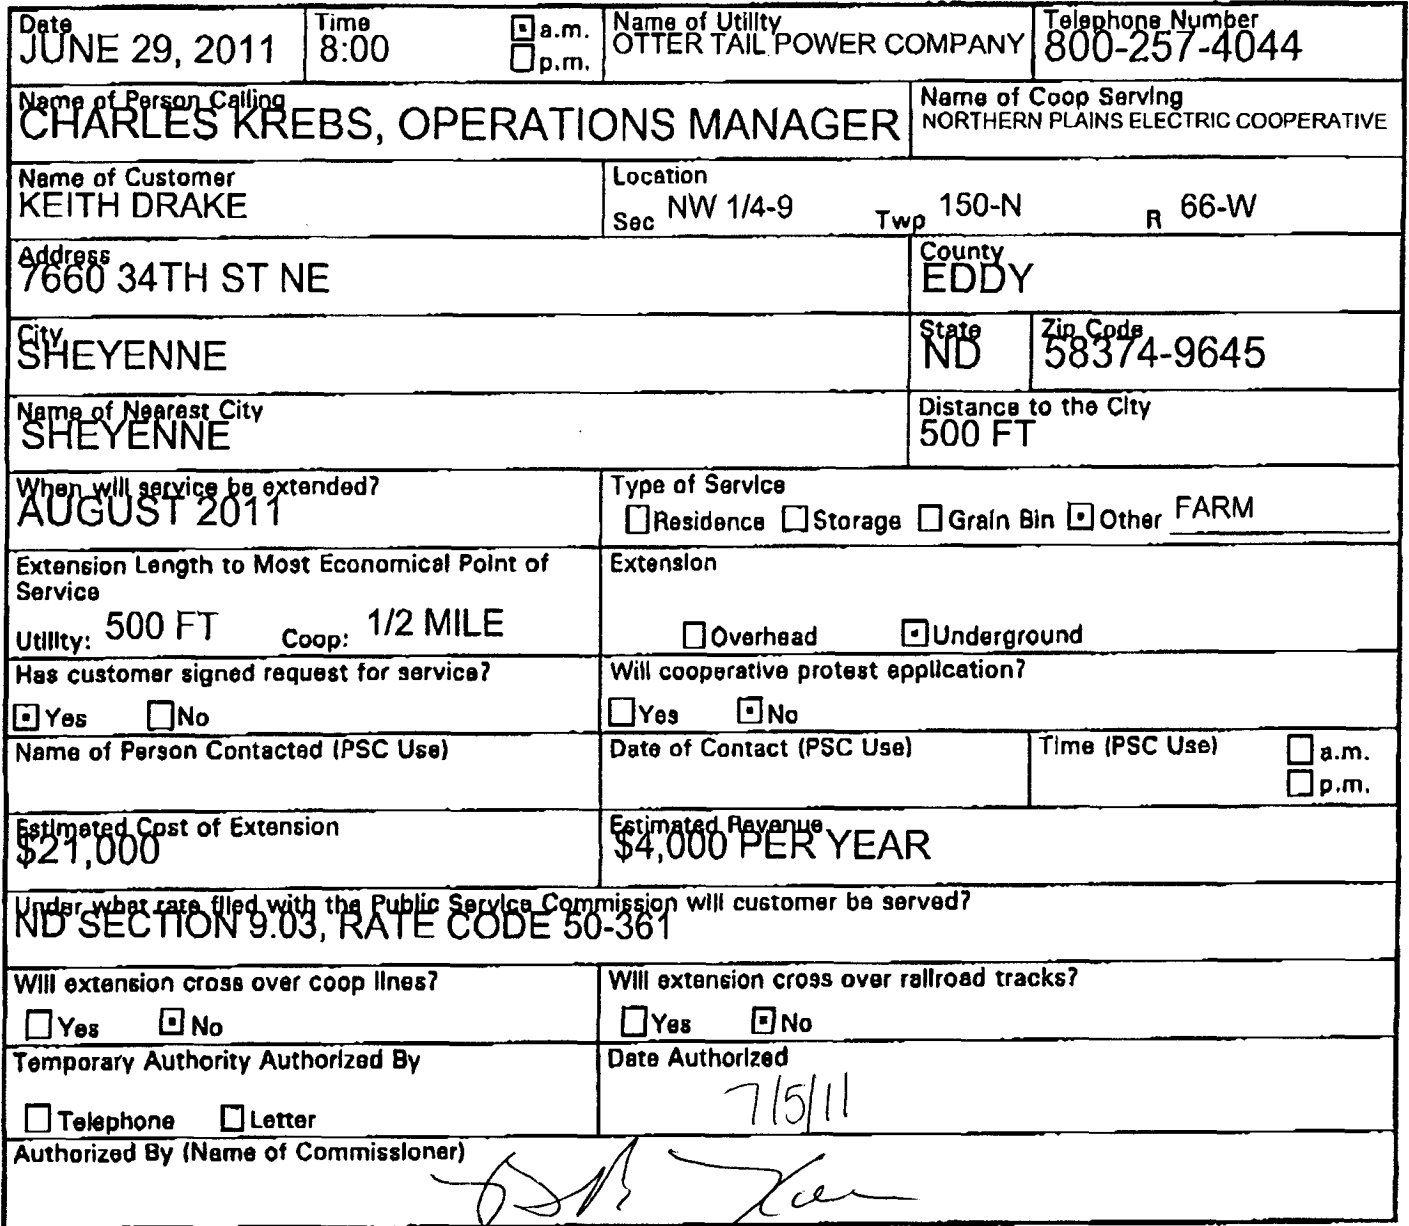 Date
JUNE 29, 2011
Time
8:00
a.m.
p.m.
Name of Utility
OTTER TAIL POWER COMPANY
Telephone Number
800-257-4044
Name of Person Calling
CHARLES KREBS, OPERATIONS MANAGER
Name of Coop Serving
NORTHERN PLAINS ELECTRIC COOPERATIVE
Name of Customer
KEITH DRAKE
Location
Sec NW 1/4-9 Twp 150-N R 66-W
Address
7660 34TH ST NE
County
EDDY
City
SHEYENNE
State
ND
Zip Code
58374-9645
Name of Nearest City
SHEYENNE
Distance to the City
500 FT
When will service be extended?
AUGUST 2011
Type of Service
Residence Storage Grain Bin Other FARM
Extension Length to Most Economical Point of
Service
Utility: 500 FT Coop: 1/2 MILE
Extension
Overhead Underground
Has customer signed request for service?
Yes No
Will cooperative protest application?
Yes No
Name of Person Contacted (PSC Use)
Date of Contact (PSC Use)
Time (PSC Use)
a.m.
p.m.
Estimated Cost of Extension
$21,000
Estimated Revenue
$4,000 PER YEAR
Under what rate filed with the Public Service Commission will customer be served?
ND SECTION 9.03, RATE CODE 50-361
Will extension cross over coop lines?
Yes No
Will extension cross over railroad tracks?
Yes No
Temporary Authority Authorized By
Telephone Letter
Date Authorized
7/5/11
Authorized By (Name of Commissioner)